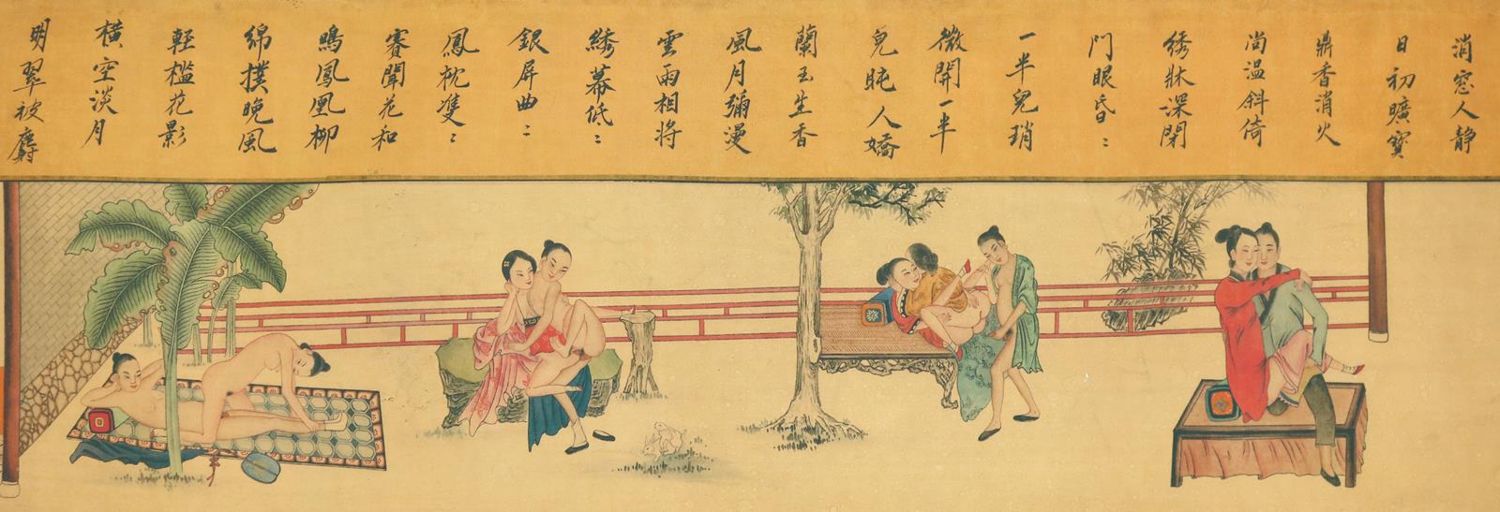 消窓人静
日初曠寳
鼎香消火
尚温斜倚
綉牀深閉
門眼昏〻
一半兒瑣
微開一半
兒盹人嬌
蘭玉生香
風月彌漫
雲雨相將
綉幕低〻
銀屏曲〻
鳳枕雙〻
賽聞花和
鳴鳳凰柳
綿撲晚風
輕檻花影
横空淡月
明翠被麝